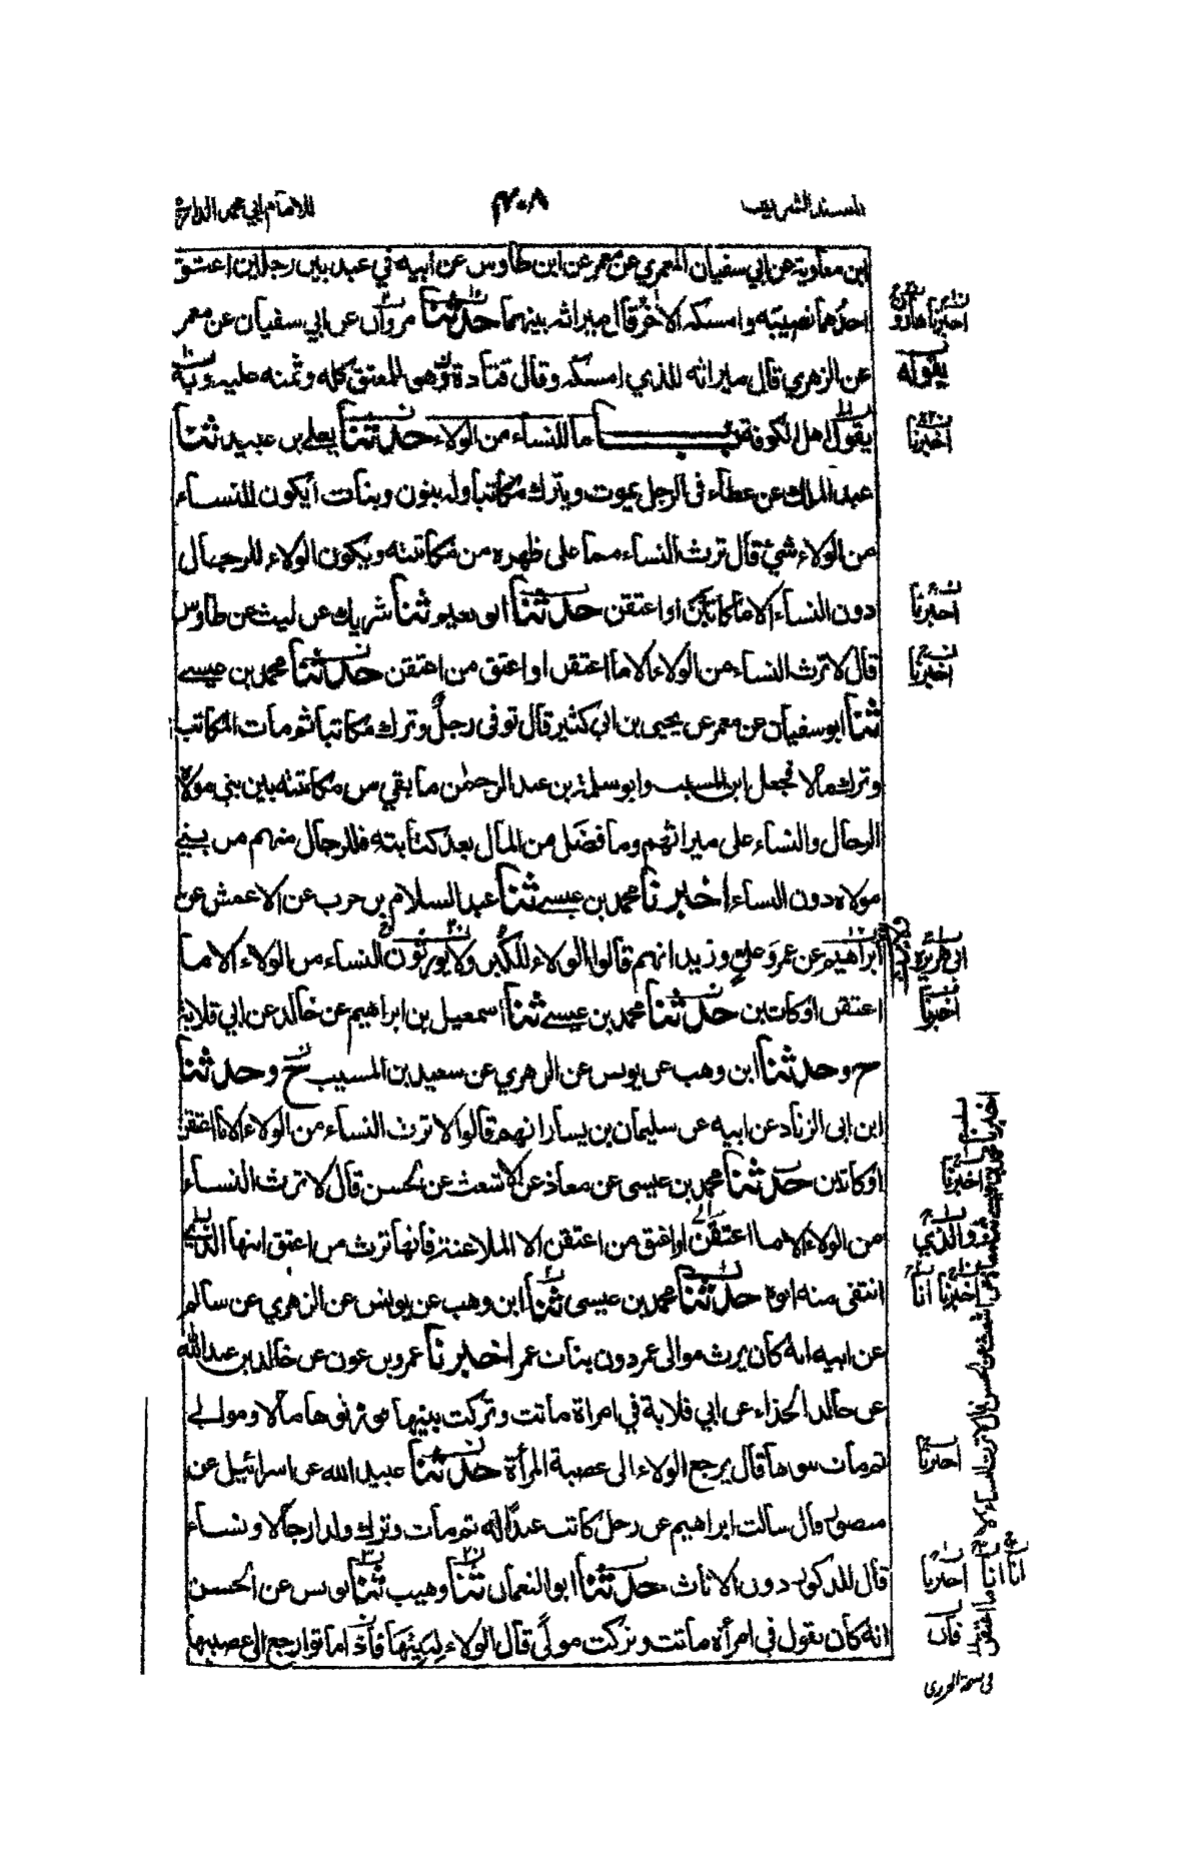 المسند الشريف
٤٠٨
للامام ابي محمد الدارمي
ابن معاوية عن ابي سفيان المعمري عن معمر عن ابن طاوس عن ابيه في عبد بين رجلين اعتق
احدهما نصيبه وامسكه الاخر قال ميراثه بينهما حدثنا مروان عن ابي سفيان عن معمر
عن الزهري قال ميراثه للذي امسكه وقال قتادة هو للمعتق كله وثمنه عليه وبه
يقول اهل الكوفة باب ما للنساء من الولاء حدثنا يعلى بن عبيد ثنا
عبد الملك عن عطاء فى الرجل يموت ويترك مكاتبا وله بنون وبنات أيكون للنساء
من الولاء شئ قال ترث النساء مما على ظهره من مكاتبته ويكون الولاء للرجال
دون النساء الا ما كاتبن او اعتقن حدثنا ابو نعيم ثنا شريك عن ليث عن طاوس
قال لا ترث النساء من الولاء الا ما اعتقن او اعتق من اعتقن حدثنا محمد بن عيسى
ثنا ابو سفيان عن معمر عن يحيى بن ابي كثير قال توفى رجل وترك مكاتبا ثم مات المكاتب
وترك مالا فجعل ابن المسيب وابو سلمة بن عبد الرحمن ما بقي من مكاتبته بين بني مولاه
الرجال والنساء على ميراثهم وما فضل من المال بعد كتابته فللرجال منهم من بني
مولاه دون النساء اخبرنا محمد بن عيسى ثنا عبد السلام بن حرب عن الاعمش عن
ابراهيم عن عمر وعلي وزيد انهم قالوا الولاء للكبر ولا يورثون النساء من الولاء الا ما
اعتقن او كاتبن حدثنا محمد بن عيسى ثنا اسمعيل بن ابراهيم عن خالد عن ابي قلابة
ح وحدثنا ابن وهب عن يونس عن الزهري عن سعيد بن المسيب ح وحدثنا
ابن ابى الزناد عن ابيه عن سليمان بن يسار انهم قالوا لا ترث النساء من الولاء الا ما اعتقن
او كاتبن حدثنا محمد بن عيسى عن معاذ عن الاشعث عن الحسن قال لا ترث النساء
من الولاء الا ما اعتقن او اعتق من اعتقن الا الملاعنة فانها ترث من اعتق ابنها الذي
انتفى منه ابوه حدثنا محمد بن عيسى ثنا ابن وهب عن يونس عن الزهري عن سالم
عن ابيه انه كان يرث موالى عمر دون بنات عمر اخبرنا عمرو بن عون عن خالد بن عبد الله
عن خالد الحذاء عن ابي قلابة في امرأة ماتت وتركت بنيها فورثوها مالا وموالي
ثم مات بنوها قال يرجع الولاء الى عصبة المرأة حدثنا عبيد الله عن اسرائيل عن
منصور قال سالت ابراهيم عن رجل كاتب عبدا له ثم مات وترك ولدا رجالا ونساء
قال للذكور دون الاناث حدثنا ابو النعمان ثنا وهيب ثنا يونس عن الحسن
انه كان يقول في امرأة ماتت وتركت مولى قال الولاء لبنيها فاذا ماتوا رجع الى عصبتها
اخبرنا هارون
يقوله
اخبرنا
اخبرنا
اخبرنا
اخبرنا
اخبرنا
والذي
اخبرنا انا
اخبرنا
اخبرنا انا انا
فان
اخبرنا محمد بن عيسى اشعث عن الحسن قال لا ترث النساء الا ما اعتقن